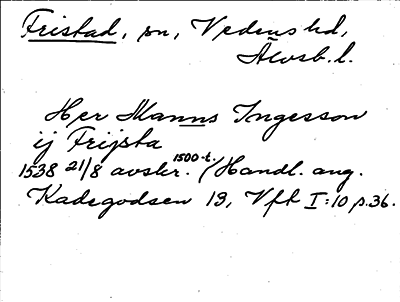 Fristad, sn, Vedens hd,
Älvsb. l.
Her Manns Ingesson
ij Frijsta
1538 21/8 avskr. 1500-t. (Handl. ang.
Kadsgodsen 19, Vfk I:10 p.36.